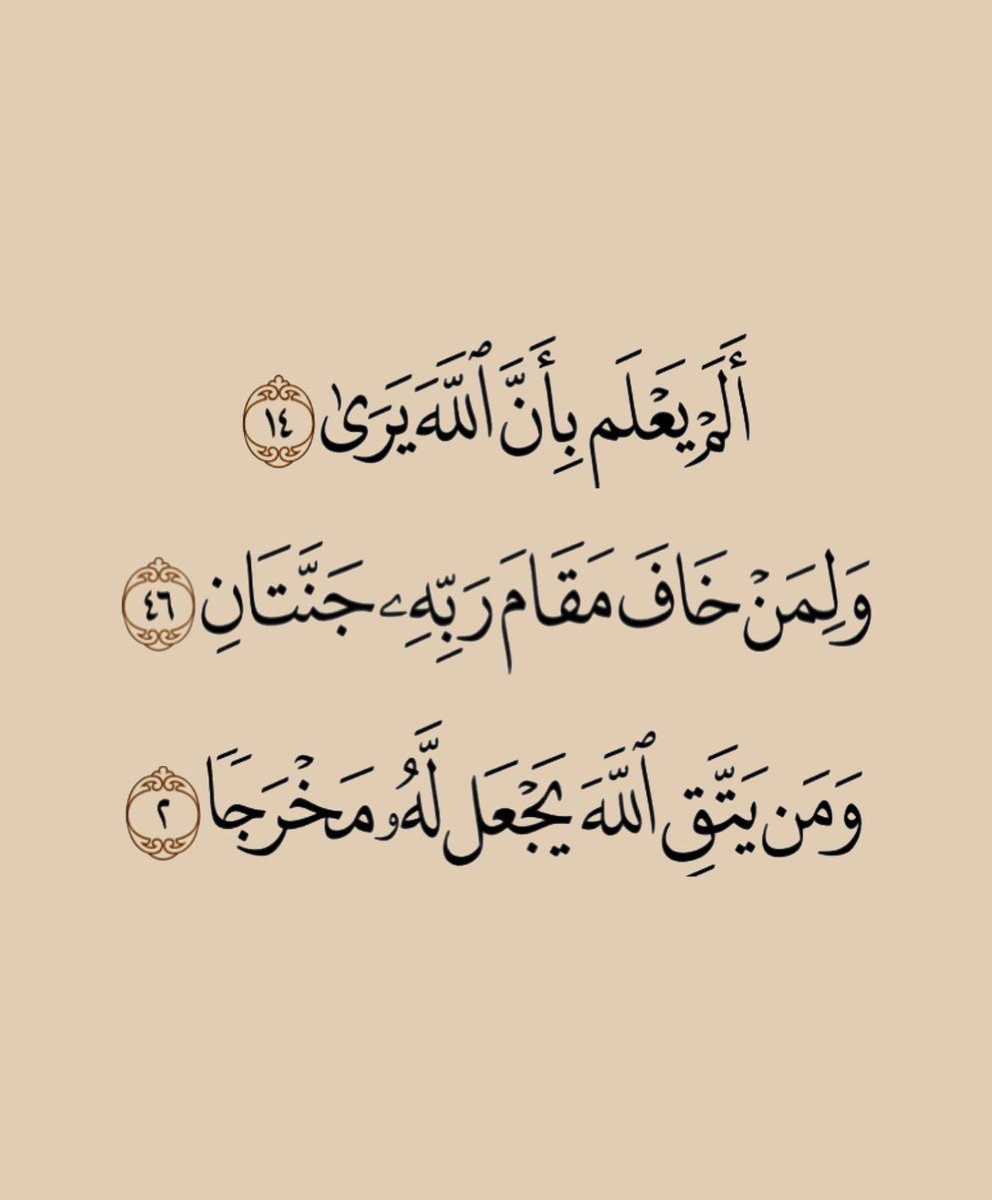 أَلَمۡ يَعۡلَم بِأَنَّ ٱللَّهَ يَرَىٰ ١٤
وَلِمَنۡ خَافَ مَقَامَ رَبِّهِۦ جَنَّتَانِ ٤٦
وَمَن يَتَّقِ ٱللَّهَ يَجۡعَل لَّهُۥ مَخۡرَجٗا ٢